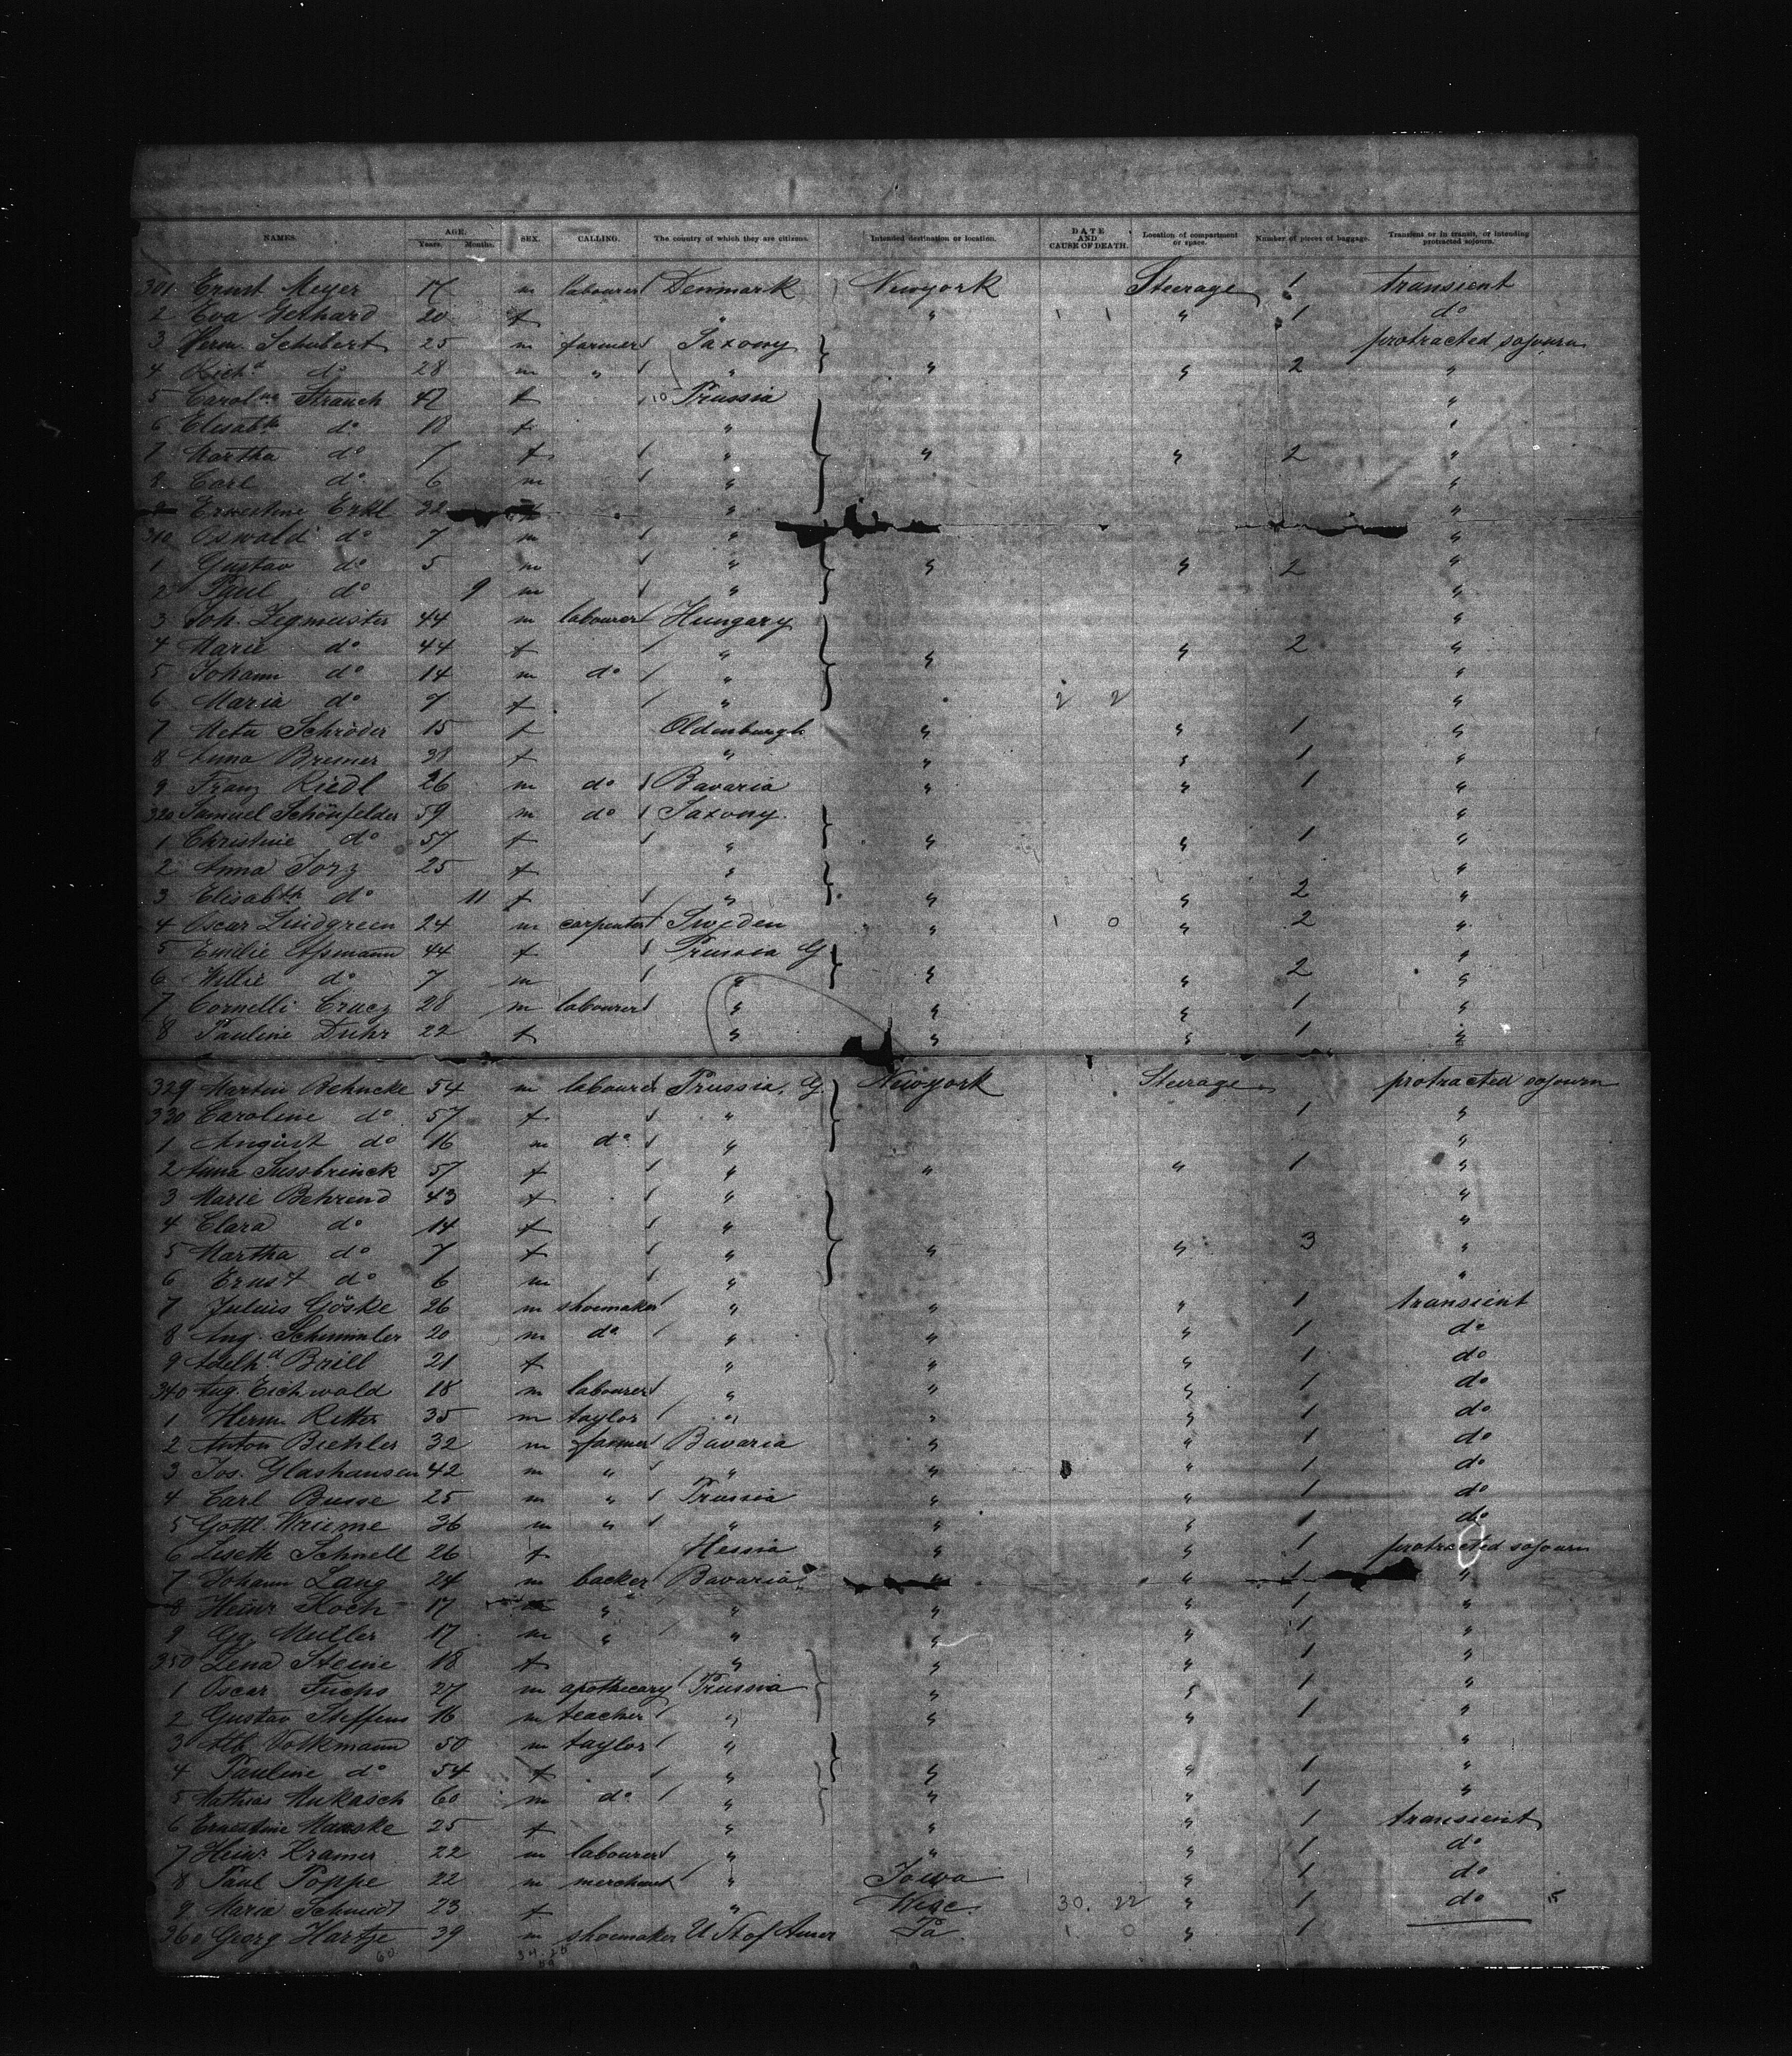 NAMES. AGE. Years. Months. SEX. CALLING. The country of which they are citizens. Intended destination or location. DATE AND CAUSE OF DEATH. Location of compartment or space. Number of pieces of baggage. Transient or in transit, or intending protracted sojourn.
301 Ernst Meyer 17 m labourer Denmark Newyork Steerage 1 transient
2 Eva Gethard 20 f " " 1 1 " 1 do
3 Herm. Schubert 25 m farmer Saxony protracted sojourn
4 Richd do 28 m " " " " 2 "
5 Carolne Strauch 47 f 10 Prussia "
6 Elisabth do 18 f " "
7 Martha do 7 f " " " 2 "
8 Carl do 6 m " "
9 Ernestine Erkl 32 f " "
310 Oswald do 7 m " "
1 Gustav do 5 m " " " 2 "
2 Paul do 9 m " "
3 Joh. Zegmeister 44 m labourer Hungary "
4 Marie do 44 f " " " 2 "
5 Johann do 14 m do " "
6 Maria do 9 f " 2 2 "
7 Meta Schröder 15 f Oldenburgh " " 1 "
8 Anna Bremer 38 f " " " 1 "
9 Franz Riedl 26 m do Bavaria " " 1 "
320 Samuel Schönfelder 59 m do Saxony "
1 Christine do 57 f " " " 1 "
2 Anna Torz 25 f " "
3 Elisabth do 11 f " " " 2 "
4 Oscar Lindgreen 24 m carpenter Sweden " 1 0 " 2 "
5 Emilie Assmann 44 f Prussia G "
6 Willie do 7 m " " " 2 "
7 Cornelli Crucz 28 m labourer " " " 1 "
8 Pauline Duhr 22 f " " " 1 "
329 Martin Behncke 54 m labourer Prussia, G. Newyork Steerage protracted sojourn
330 Caroline do 57 f " 1 "
1 August do 16 m do " "
2 Anna Sussbrinck 57 f " " " 1 "
3 Marie Behrend 43 f " "
4 Clara do 14 f " "
5 Martha do 7 f " " " 3 "
6 Ernst do 6 m " "
7 Julius Göske 26 m shoemaker " " " 1 transient
8 Aug. Schimmler 20 m do " " " 1 do
9 Adelhd Brill 21 f " " " 1 do
340 Aug. Eichwald 18 m labourer " " " 1 do
1 Herm. Ritter 35 m taylor " " " 1 do
2 Anton Biehler 32 m farmer Bavaria " " 1 do
3 Jos. Glashausen 42 m " " " " 1 do
4 Carl Busse 25 m " Prussia " " 1 do
5 Gottl. Wrieme 36 m " " " " 1 do
6 Lisette Schnell 26 f Hessia " " 1 protracted sojourn
7 Johann Lang 24 m backer Bavaria " " 1 "
8 Heinr Koch 17 m " " " " 1 "
9 Gg. Muller 17 m " " " " 1 "
350 Lena Steine 18 f " " " 1 "
1 Oscar Fuchs 27 m apothecary Prussia " " 1 "
2 Gustav Steffens 16 m teacher " " " 1 "
3 Alb. Volkmann 50 m taylor " "
4 Pauline do 54 f " " " 1 "
5 Mathias Mukasch 60 m do " " " 1 "
6 Ernestine Manske 25 f " " " 1 transient
7 Heinr Kramer 22 m labourer " " " 1 do
8 Paul Poppe 22 m merchant " Iowa " 1 do
9 Maria Schmidt 23 f " Wisc. 30. 22 " 1 do
360 Georg Hartje 39 m shoemaker U St of Amer Pa. 1 0 " 1
60